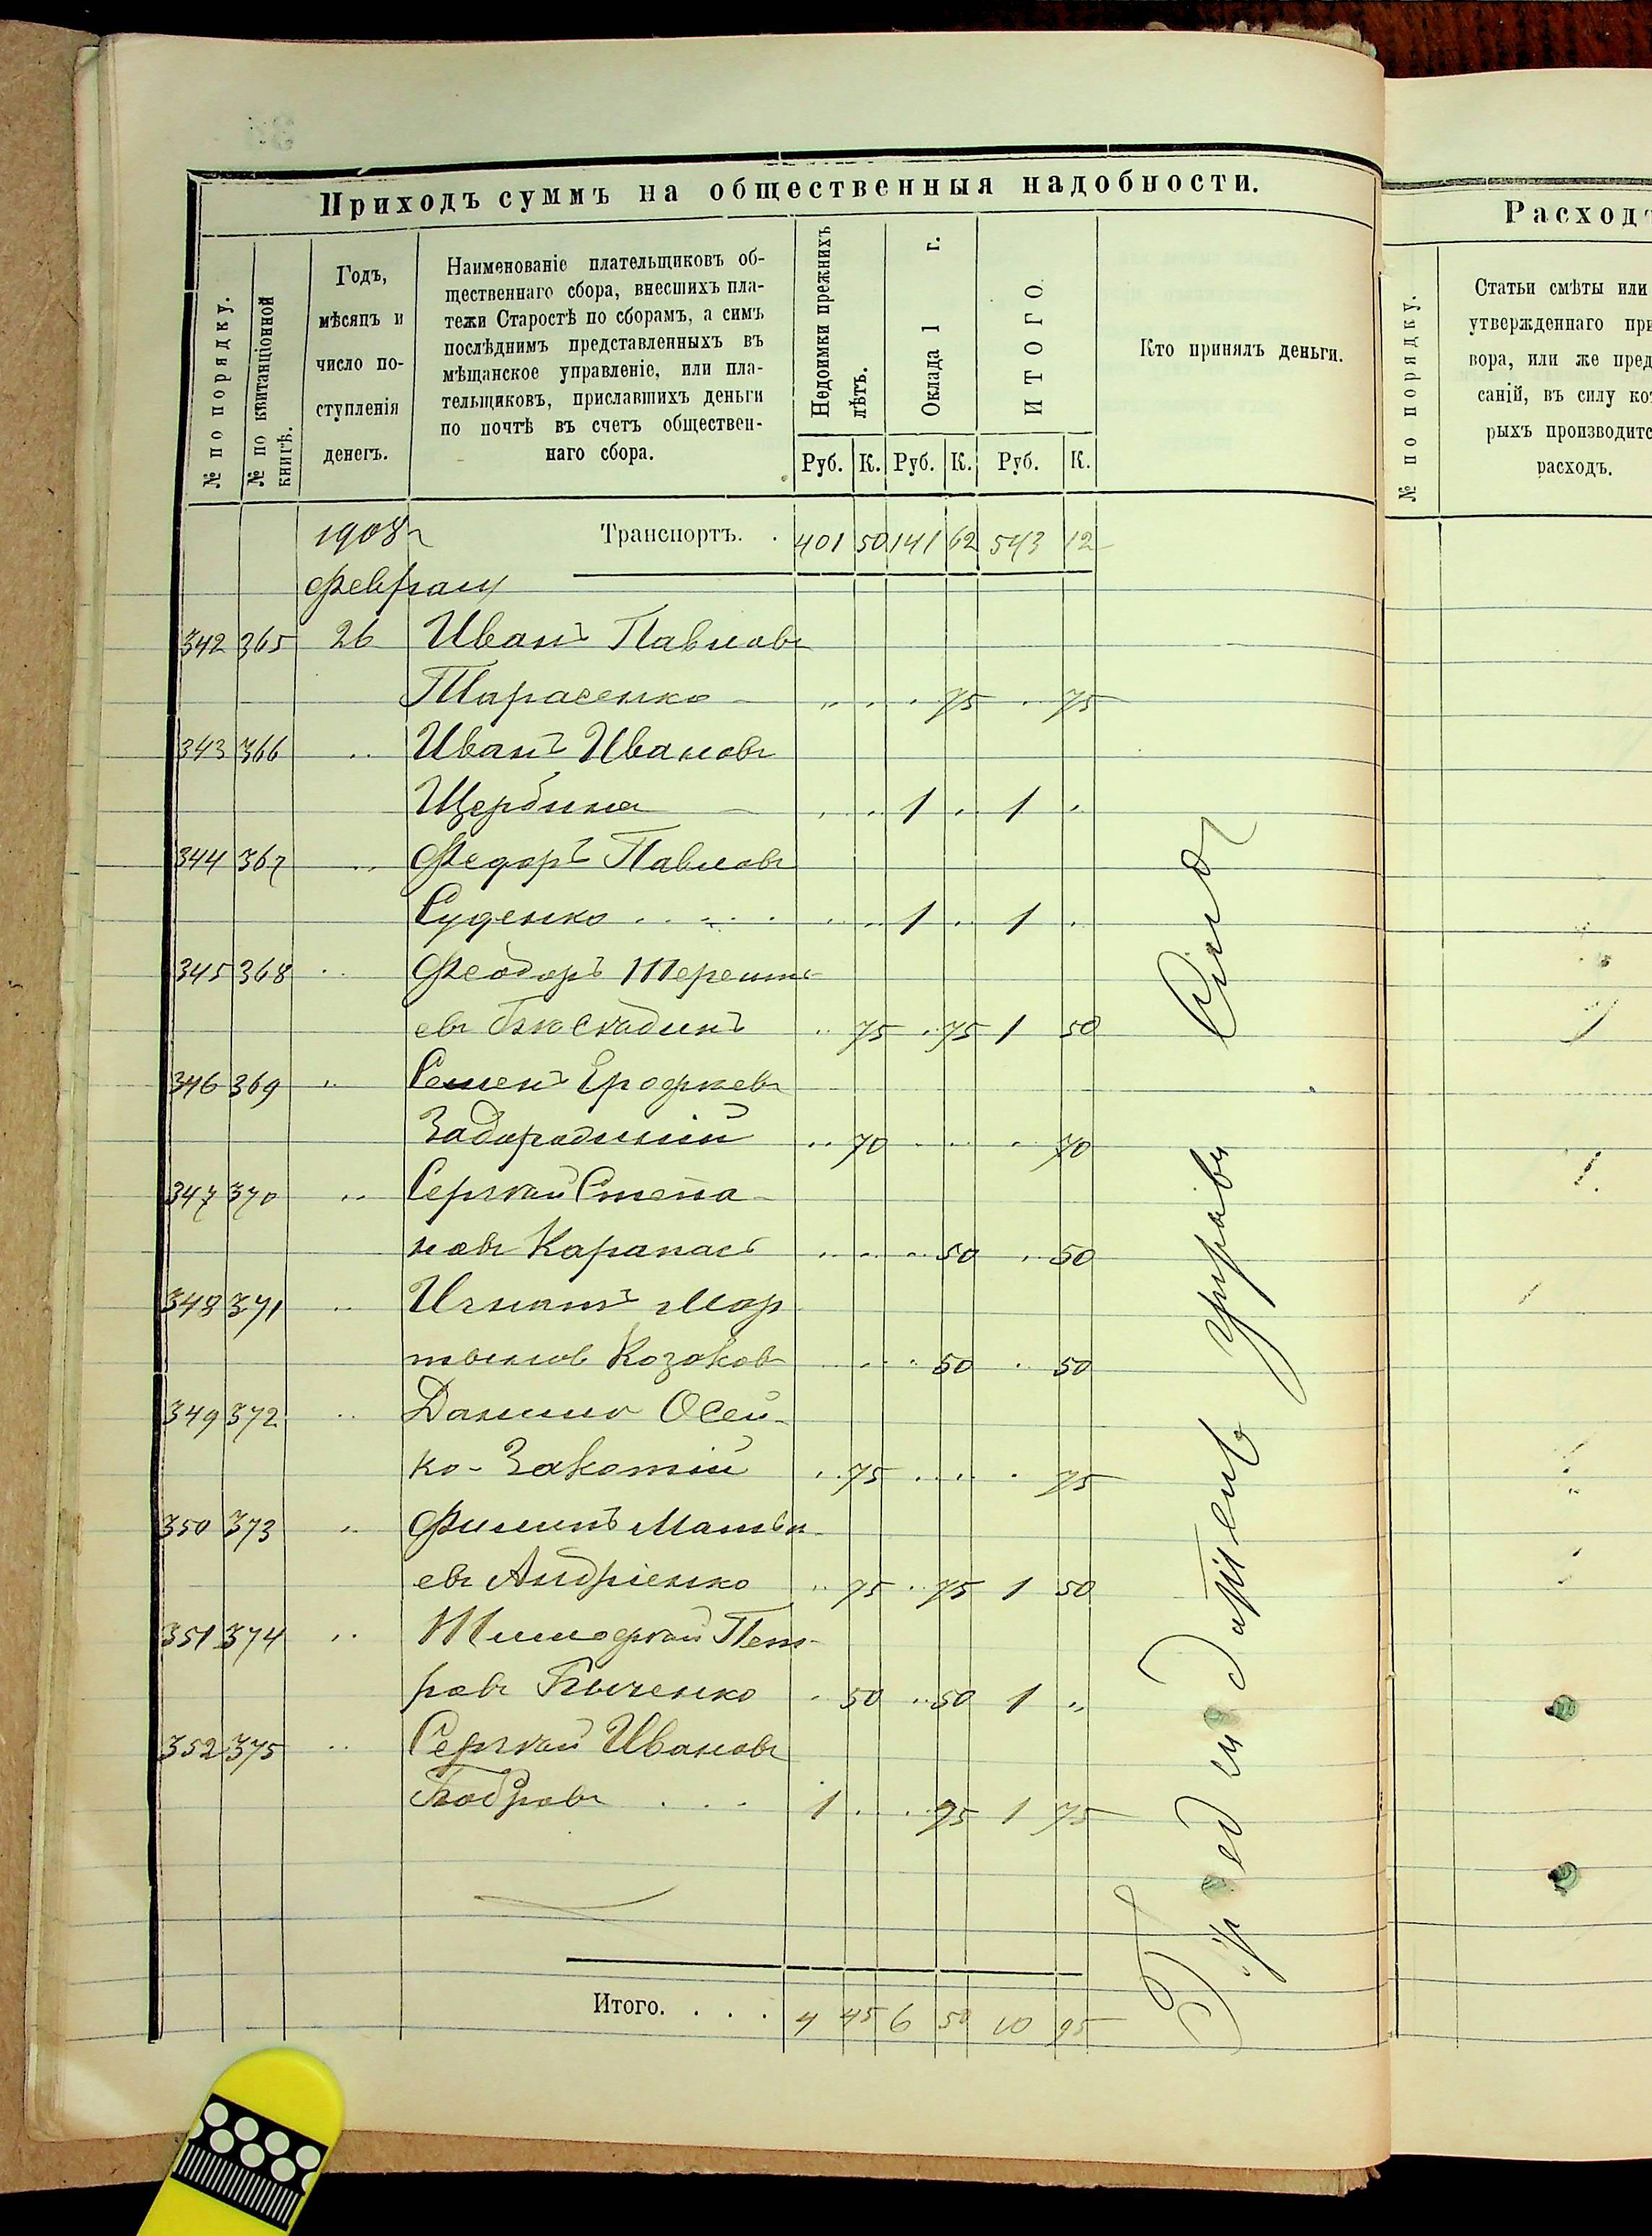 Приходъ суммъ на общественныя надобности.
№ по порядку.
№ по квитанціонной
книгѣ.
Годъ,
мѣсяцъ и
число по-
ступленія
денегъ.
Наименованіе плательщиковъ об-
щественнаго сбора, внесшихъ пла-
тежи Старостѣ по сборамъ, а симъ
послѣднимъ представленныхъ въ
мѣщанское управленіе, или пла-
тельщиковъ, приславшихъ деньги
по почтѣ въ счетъ обществен-
наго сбора.
Недоимки прежнихъ
лѣтъ.
Оклада 1 г.
ИТОГО
Кто принялъ деньги.
Руб. К. Руб. К. Руб. К.
1908 г Транспортъ. . 401 50 141 62 543 12
Февраля
342 365 26 Иванъ Павловъ
Тарасенко 75 75
343 366 Иванъ Ивановъ
Щербина 1 1
344 367 Федоръ Павловъ
Суденко 1 1
345 368 Феодоръ Терент-
евъ 75 75 1 50
346 369 Семенъ Ерофѣевъ
70 70
347 370 Сергѣй Степа-
новъ Карапасъ 50 50
348 371 Игнатъ Мар
тыновъ Козаковъ 50 50
349 372 Данило Осей-
ко- 75 75
350 373 Филипъ Матвѣ-
евъ Андріенко 75 75 1 50
351 374 Тимофѣй Пет-
ровъ Быченко 50 50 1
352 375 Сергѣй Ивановъ
Бобровъ 1 75 1 75
Итого. . . . 4 45 6 50 10 95
управы
Расходъ
№ по порядку.
Статьи смѣты или
утвержденнаго при
вора, или же пред
саній, въ силу кот
рыхъ производитс
расходъ.